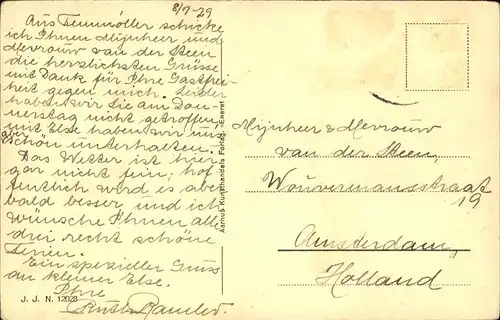 8/7-29
Aus Femmöller schicke
ich Ihnen Mijnheer und
Mevrouw van der Steen
die herzlichsten Grüsse
mit Dank für Ihre Gastfrei-
heit gegen mich. Leider
haben wir Sie am Don-
nerstag nicht getroffen,
mit Else haben wir uns
aber
schön unterhalten.
Das Wetter ist hier
gar nicht fein; hof-
fentlich wird es aber
bald besser, und ich
wünsche Ihnen all
drei recht schöne
Ferien.
Ein spezieller Gruss
an kleiner Else.
Ihre
Ruth
J. J. N. 12928
Aarhus Kunsthandels Forlag. - Eneret
Mijnheer & Mevrouw
van der Steen,
Wouvermansstraat
19
Amsterdam,
Holland